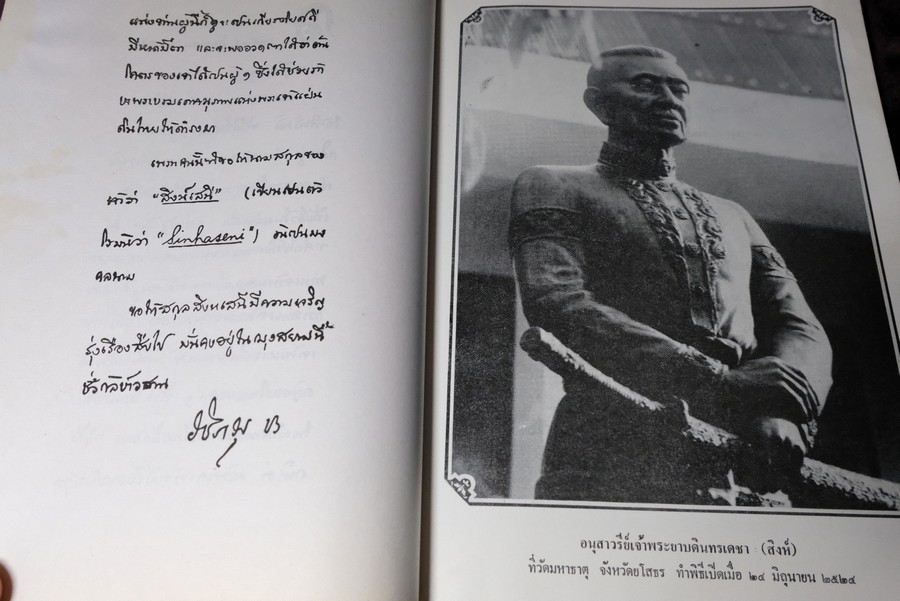 มีหน้ามีตา และจะพออวดเขาได้ว่าต้น
โคตรของเขาได้เป็นผู้ ๑ ซึ่งได้ช่วยรัก
ษาพระบรมเดชานุภาพแห่งพระเจ้าแผ่น
ดินไทยให้ดำรงมา
เพราะฉนนี้ขอให้นามสกุลของ
หัวว่า "สิงห์เสนี" (เขียนเปนตัว
โรมันว่า "Sinhaseni") อันเปนมง
คลนาม
ขอให้สกุลสิงหเสนีมีความเจริญ
รุ่งเรืองสืบไป มั่นคงอยู่ในกรุงสยามนี้
ชั่วกัลปาวสาน
อนุสาวรีย์เจ้าพระยาบดินทรเดชา (สิงห์)
ที่วัดมหาธาตุ จังหวัดยโสธร ทำพิธีเปิดเมื่อ ๒๔ มิถุนายน ๒๕๒๔